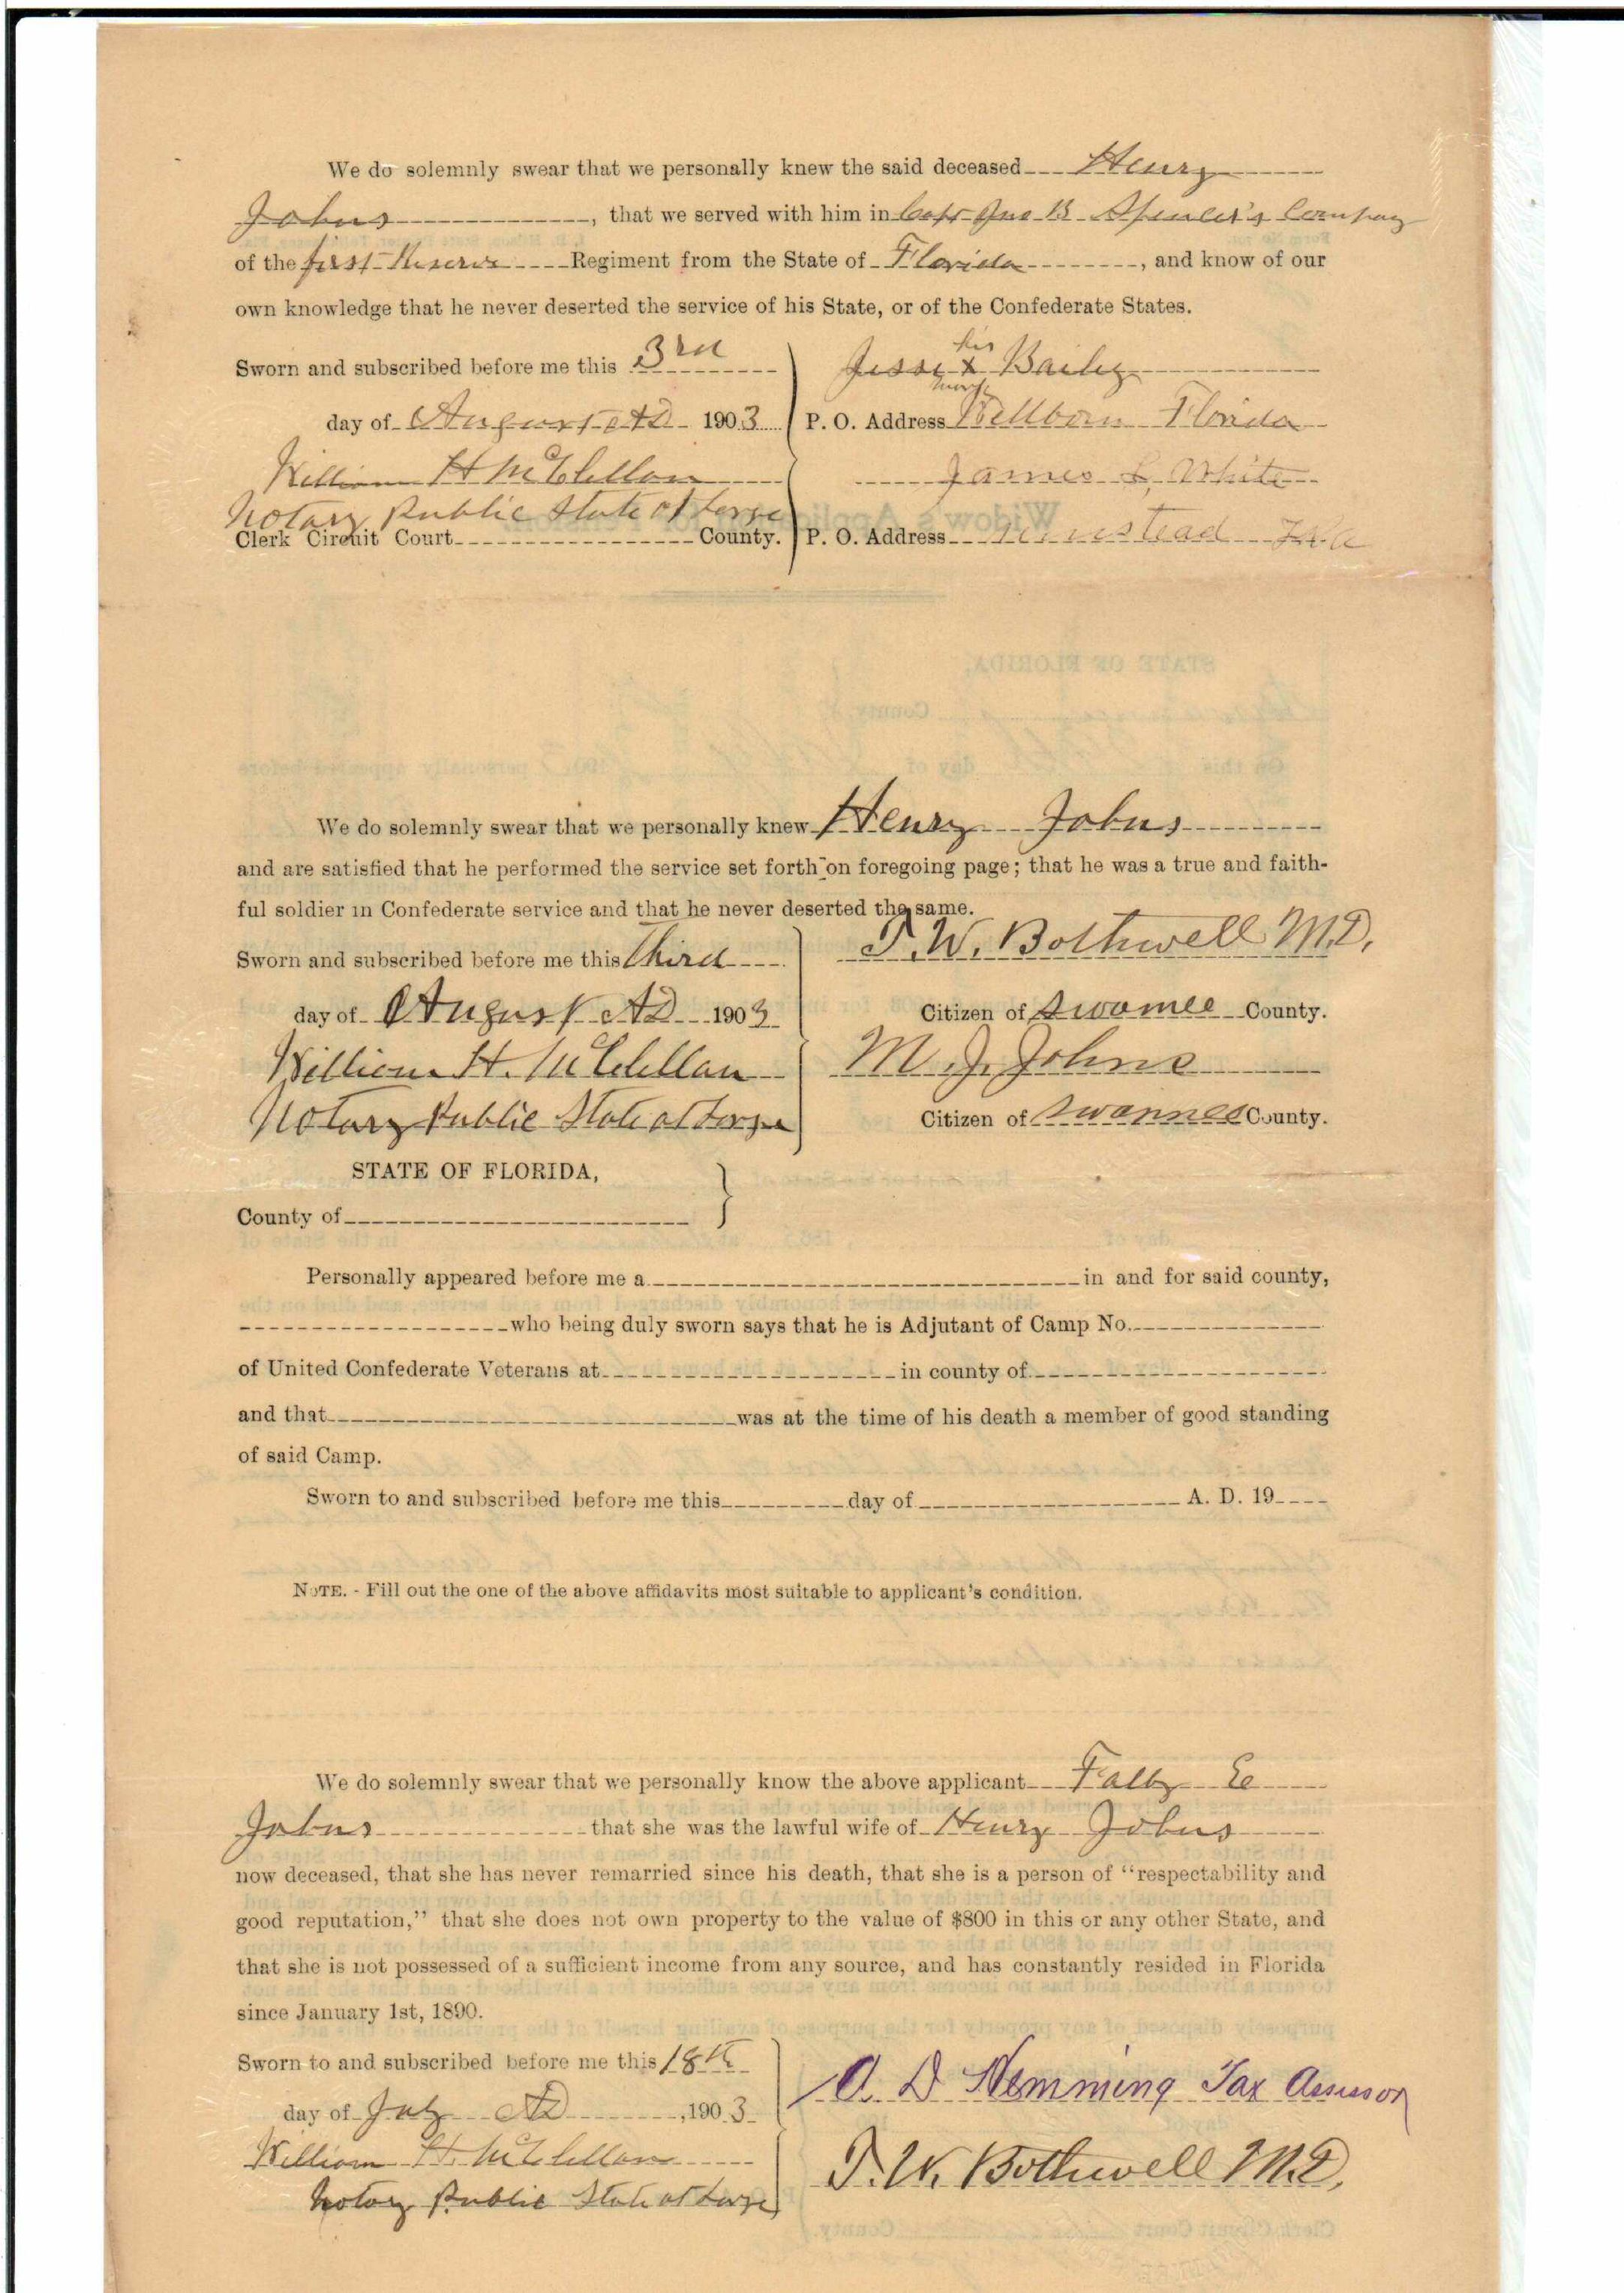 We do solemnly swear that we personally knew the said deceased Henry
Johns, that we served with him in Capt Jno B Spencer's Company
of the first Reserve Regiment from the State of Florida, and know of our
own knowledge that he never deserted the service of his State, or of the Confederate States.
Sworn and subscribed before me this 3rd
day of August AD 1903
William H McClellan
Notary Public State at Large
Clerk Circuit Court County.
his
Jesse x Bailey
mark
P. O. Address Wellborn Florida
James L, White
P. O. Address Fla
We do solemnly swear that we personally knew Henry Johns
and are satisfied that he performed the service set forth on foregoing page; that he was a true and faith-
ful soldier in Confederate service and that he never deserted the same.
Sworn and subscribed before me this Third
day of August AD 1903
William H. McClellan
Notary Public State at Large
T. W. Bothwell M.D.
Citizen of Suwannee County.
M. J. Johns
Citizen of Suwannee County.
STATE OF FLORIDA,
County of
Personally appeared before me a in and for said county,
who being duly sworn says that he is Adjutant of Camp No.
of United Confederate Veterans at in county of
and that was at the time of his death a member of good standing
of said Camp.
Sworn to and subscribed before me this day of A. D. 19
NOTE. - Fill out the one of the above affidavits most suitable to applicant's condition.
We do solemnly swear that we personally know the above applicant Falby E
Johns that she was the lawful wife of Henry Johns
now deceased, that she has never remarried since his death, that she is a person of "respectability and
good reputation," that she does not own property to the value of $800 in this or any other State, and
that she is not possessed of a sufficient income from any source, and has constantly resided in Florida
since January 1st, 1890.
Sworn to and subscribed before me this 18th
day of July AD, 1903
William H. McClellan
Notary Public State at Large
A. D Hemming Tax Assessor
T. W. Bothwell M.D.